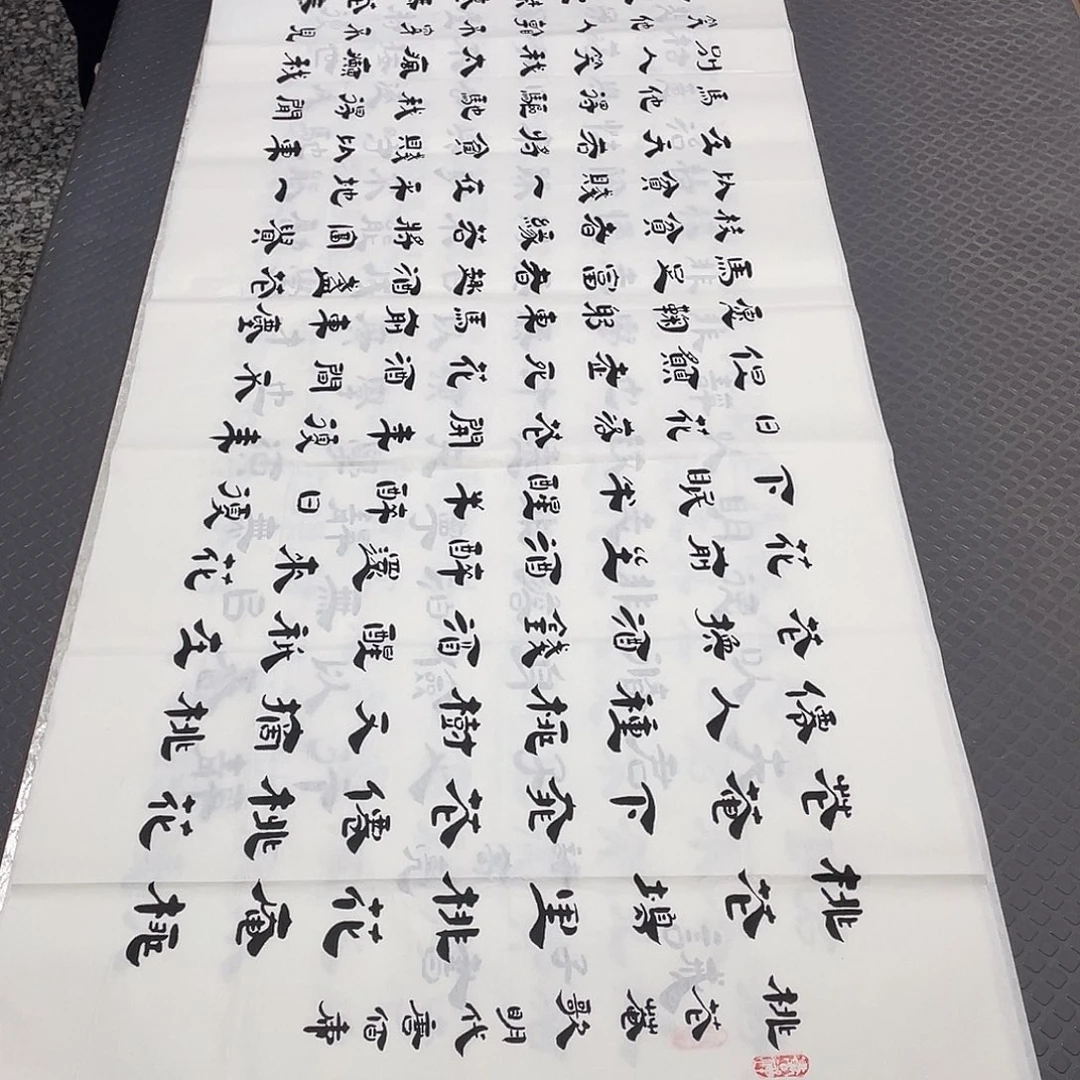 桃花菴歌明代唐伯虎
桃花塢里桃花庵桃
花菴下桃花僊桃花
僊人種桃樹又摘桃
花換酒錢酒醒祇在
花前坐酒醉還來花
下眠半醒半醉日復
日花落花開年復年
但願老死花酒間不
願鞠躬車馬前車塵
馬足富者趣酒盞花
枝貧者緣若將富貴
比貧賤一在平地一
在天若將貧賤比車
馬他得驅馳我得閒
別人笑我太瘋癲我
笑他人看不穿不見